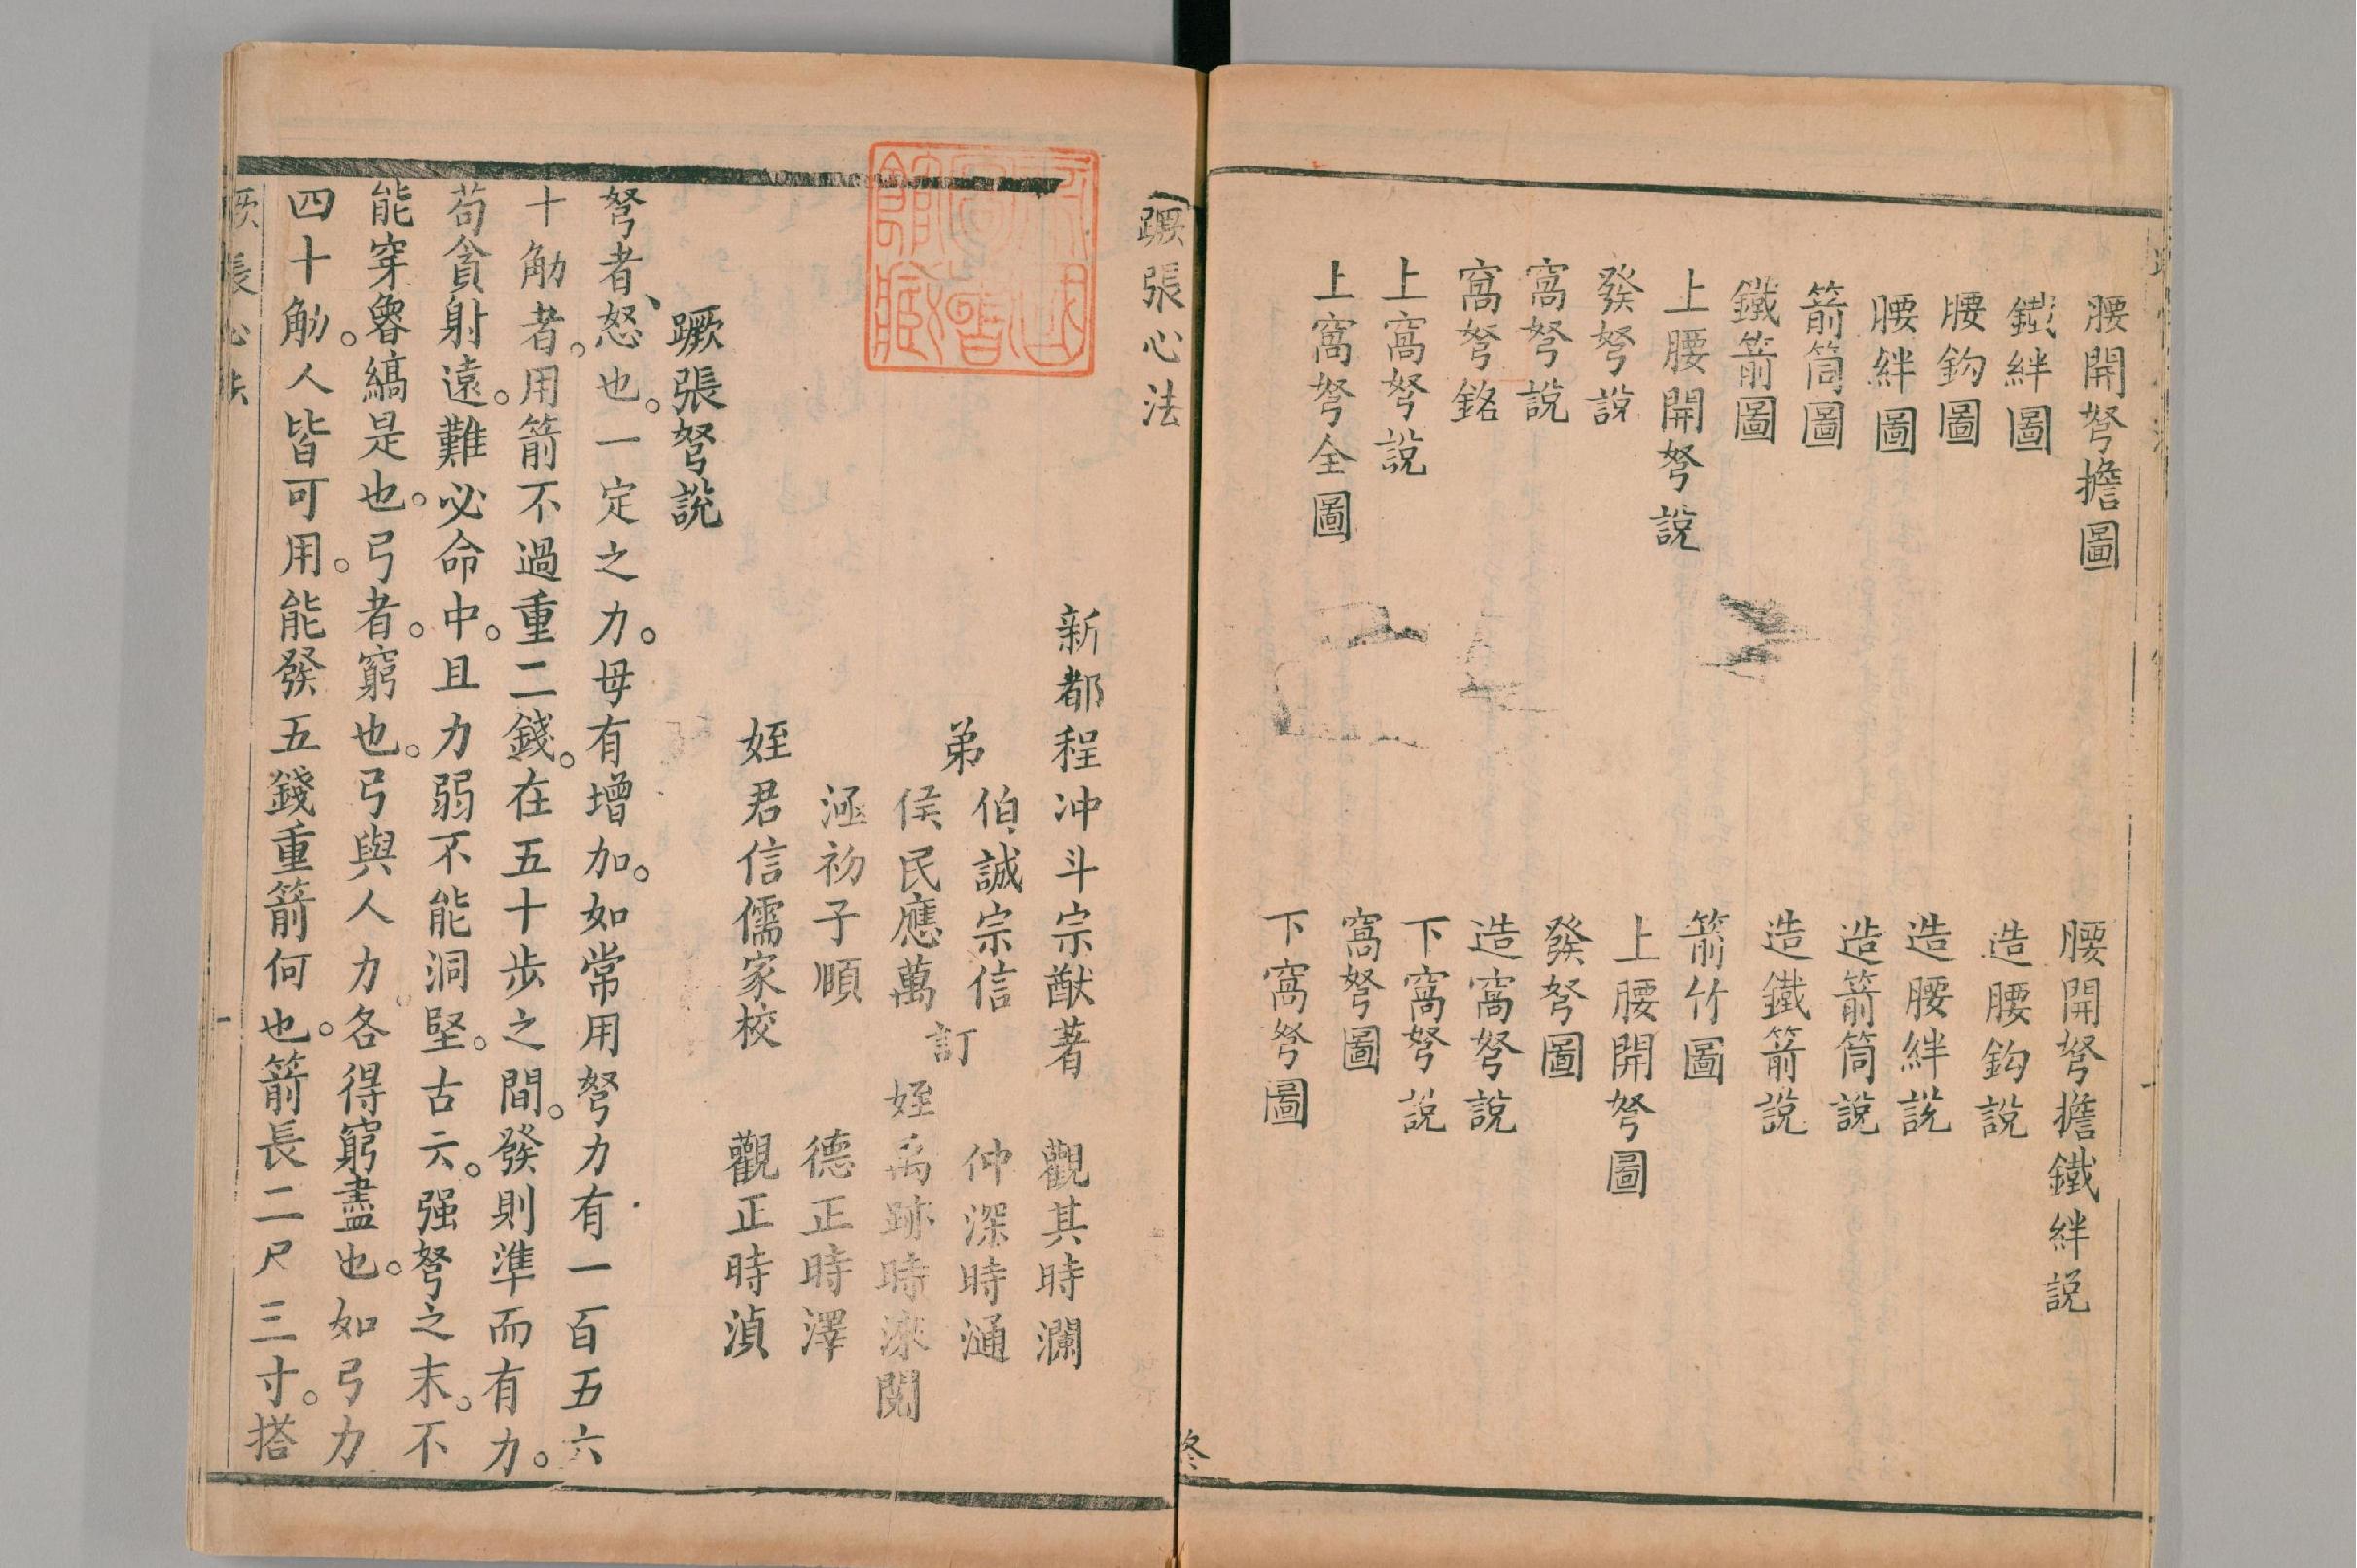 腰開弩擔圖
腰開弩擔鐵絆説
鐵絆圖
造腰鈎説
腰鈎圖
造腰絆説
腰絆圖
造箭筒説
箭筒圖
造鐵箭説
鐵箭圖
箭竹圖
上腰開弩説
上腰開弩圖
發弩説
發弩圖
窩弩説
造窩弩説
窩弩銘
下窩弩説
上窩弩説
窩弩圖
上窩弩全圖
下窩弩圖
終
蹶張心法
新都程冲斗宗猷著
觀其時瀾
弟
伯誠宗信
仲深時通
侯民應萬
訂
姪
禹跡時淶閱
涵初子順
德正時澤
姪君信儒家校
觀正時湞
蹶張弩説
弩者、怒也。一定之力。毋有增加。如常用弩力有一百五六
十觔者。用箭不過重二錢。在五十步之間。發則準而有力。
苟貪射遠。難必命中。且力弱不能洞堅。古云。强弩之末。不
能穿魯縞是也。弓者。窮也。弓與人力。各得窮盡也。如弓力
四十觔。人皆可用。能發五錢重箭何也。箭長二尺三寸。搭